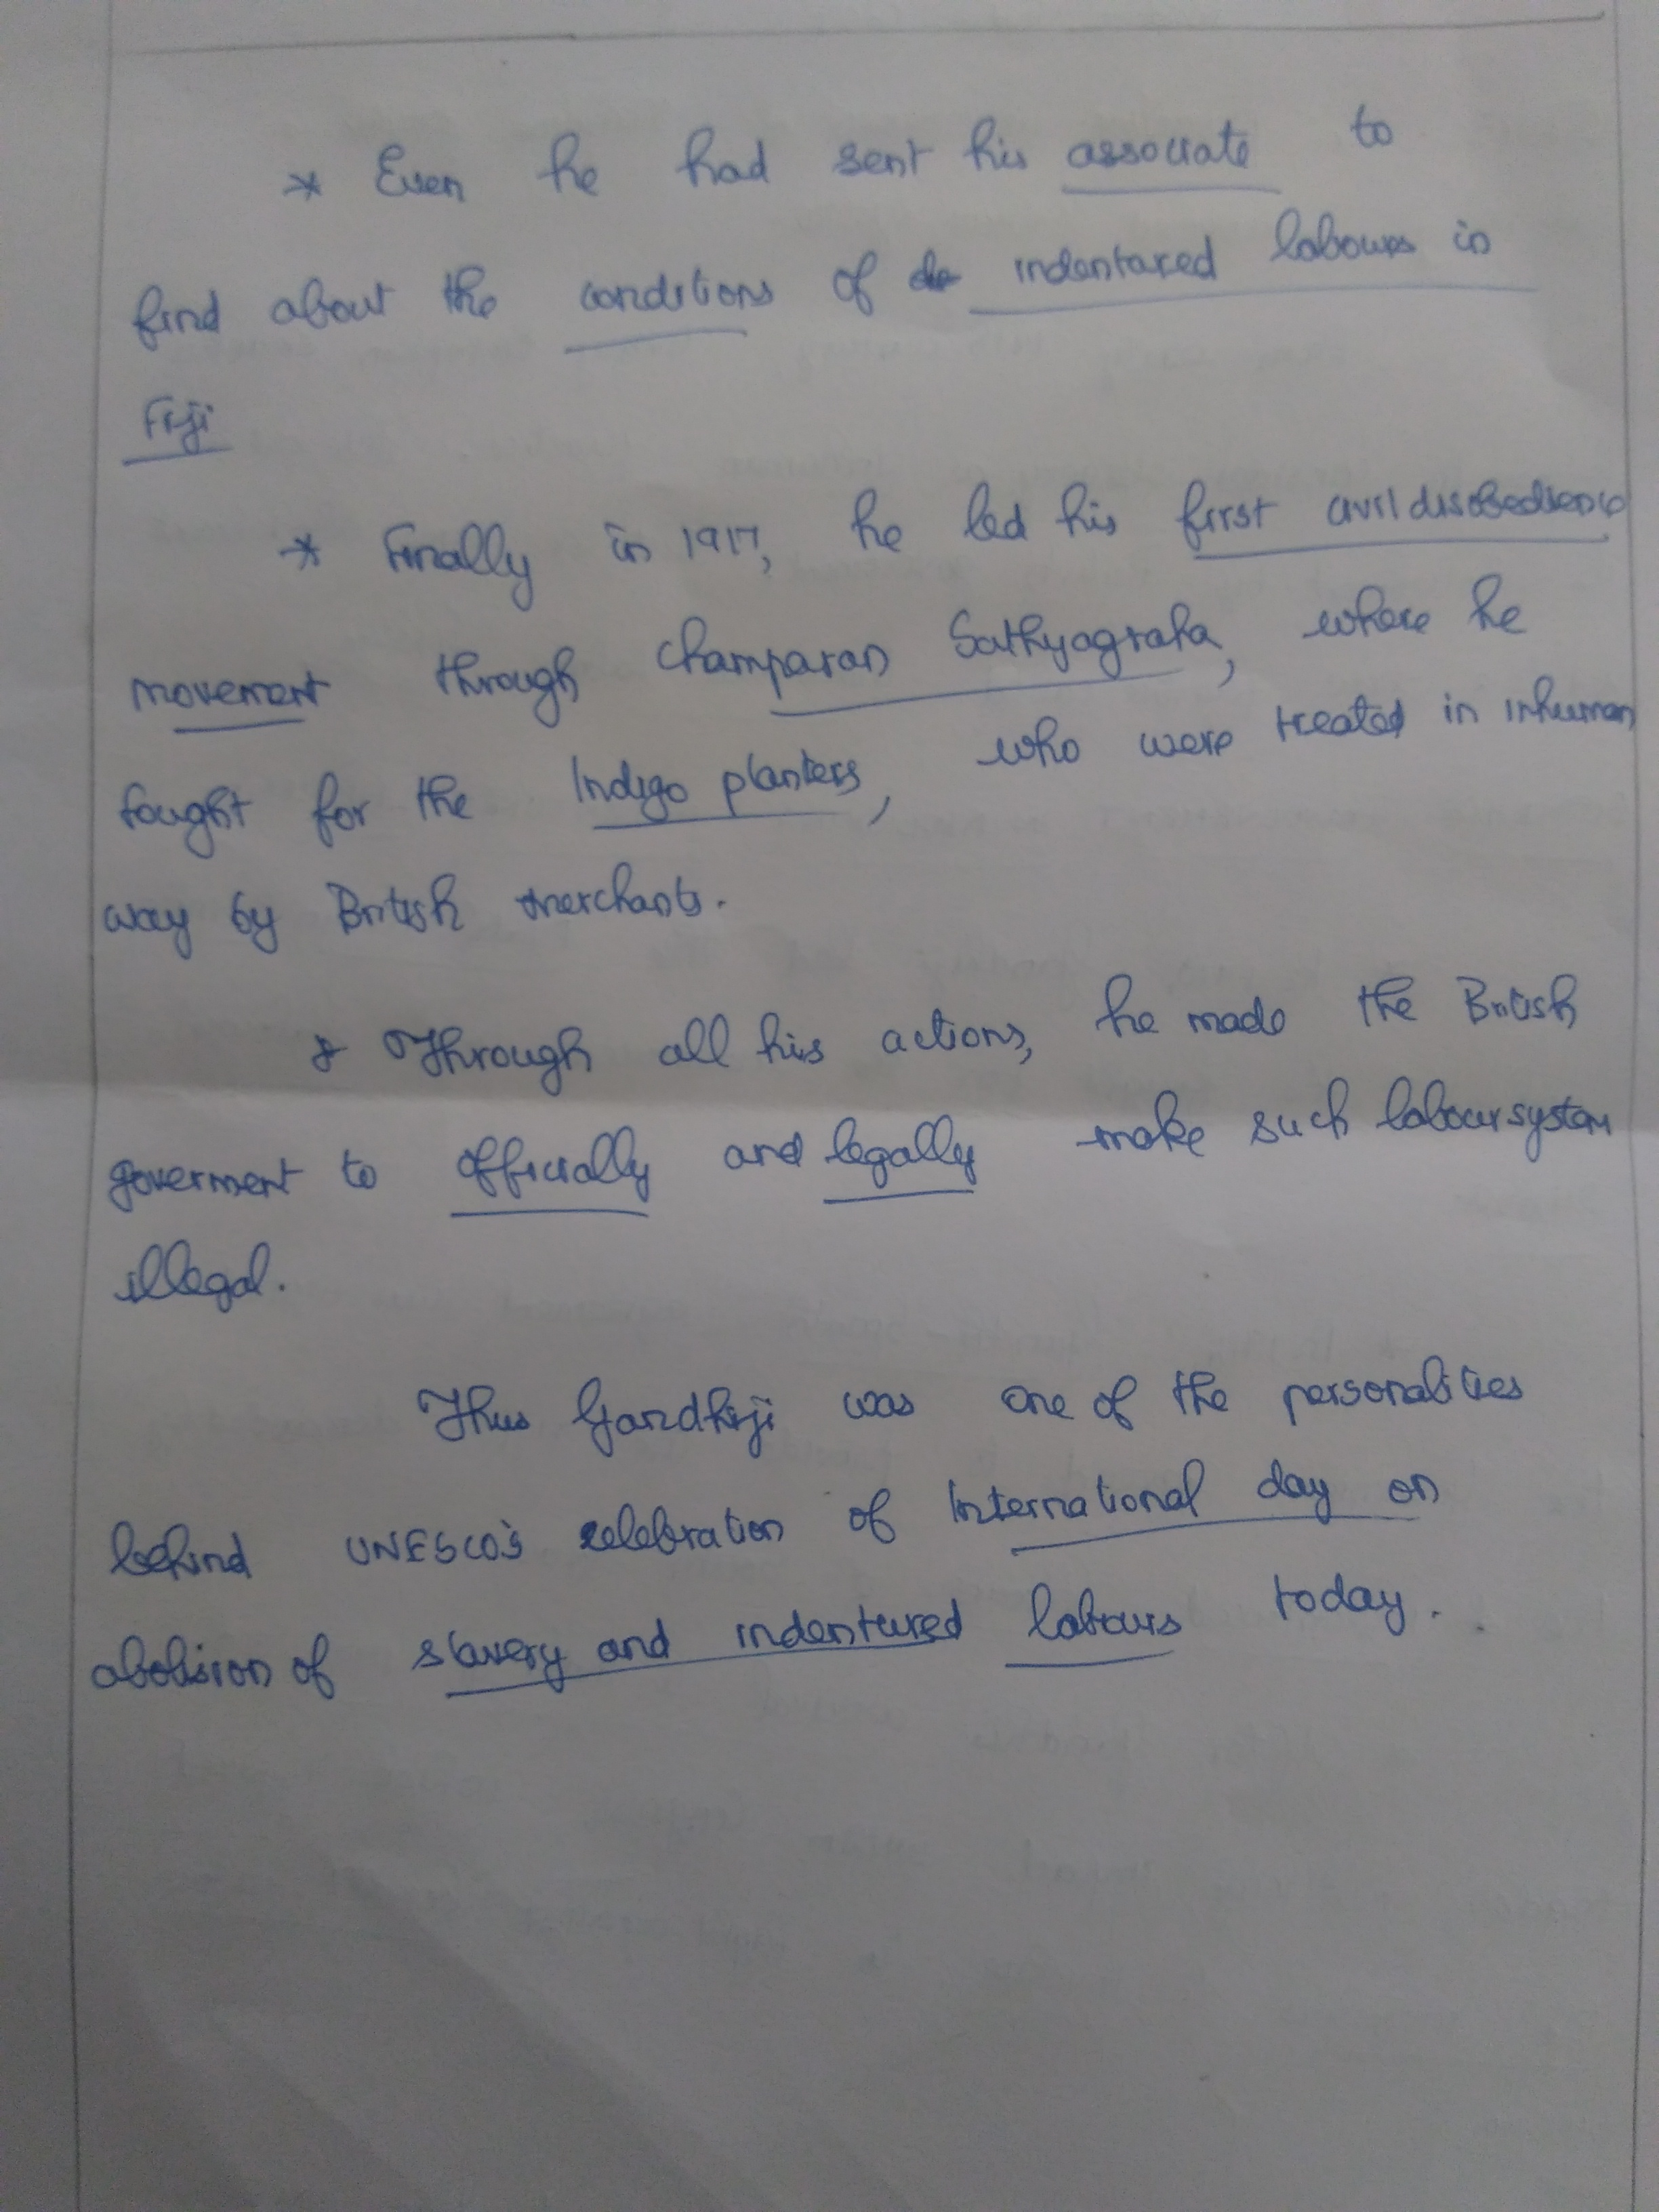 * Even he had sent his associate to
find about the conditions of indentared labours in
Fiji
* Finally in 1917, he led his first civil disobedience
movement through Champaran Sathyagraha, where he
fought for the Indigo planters, who were treated in inhuman
way by British merchants.
* Through all his actions, he made the British
goverment to officially and legally make such labour system
illegal.
Thus Gandhiji was one of the personalities
behind UNESCO's celebration of International day on
abolision of slavery and indentured labours today.